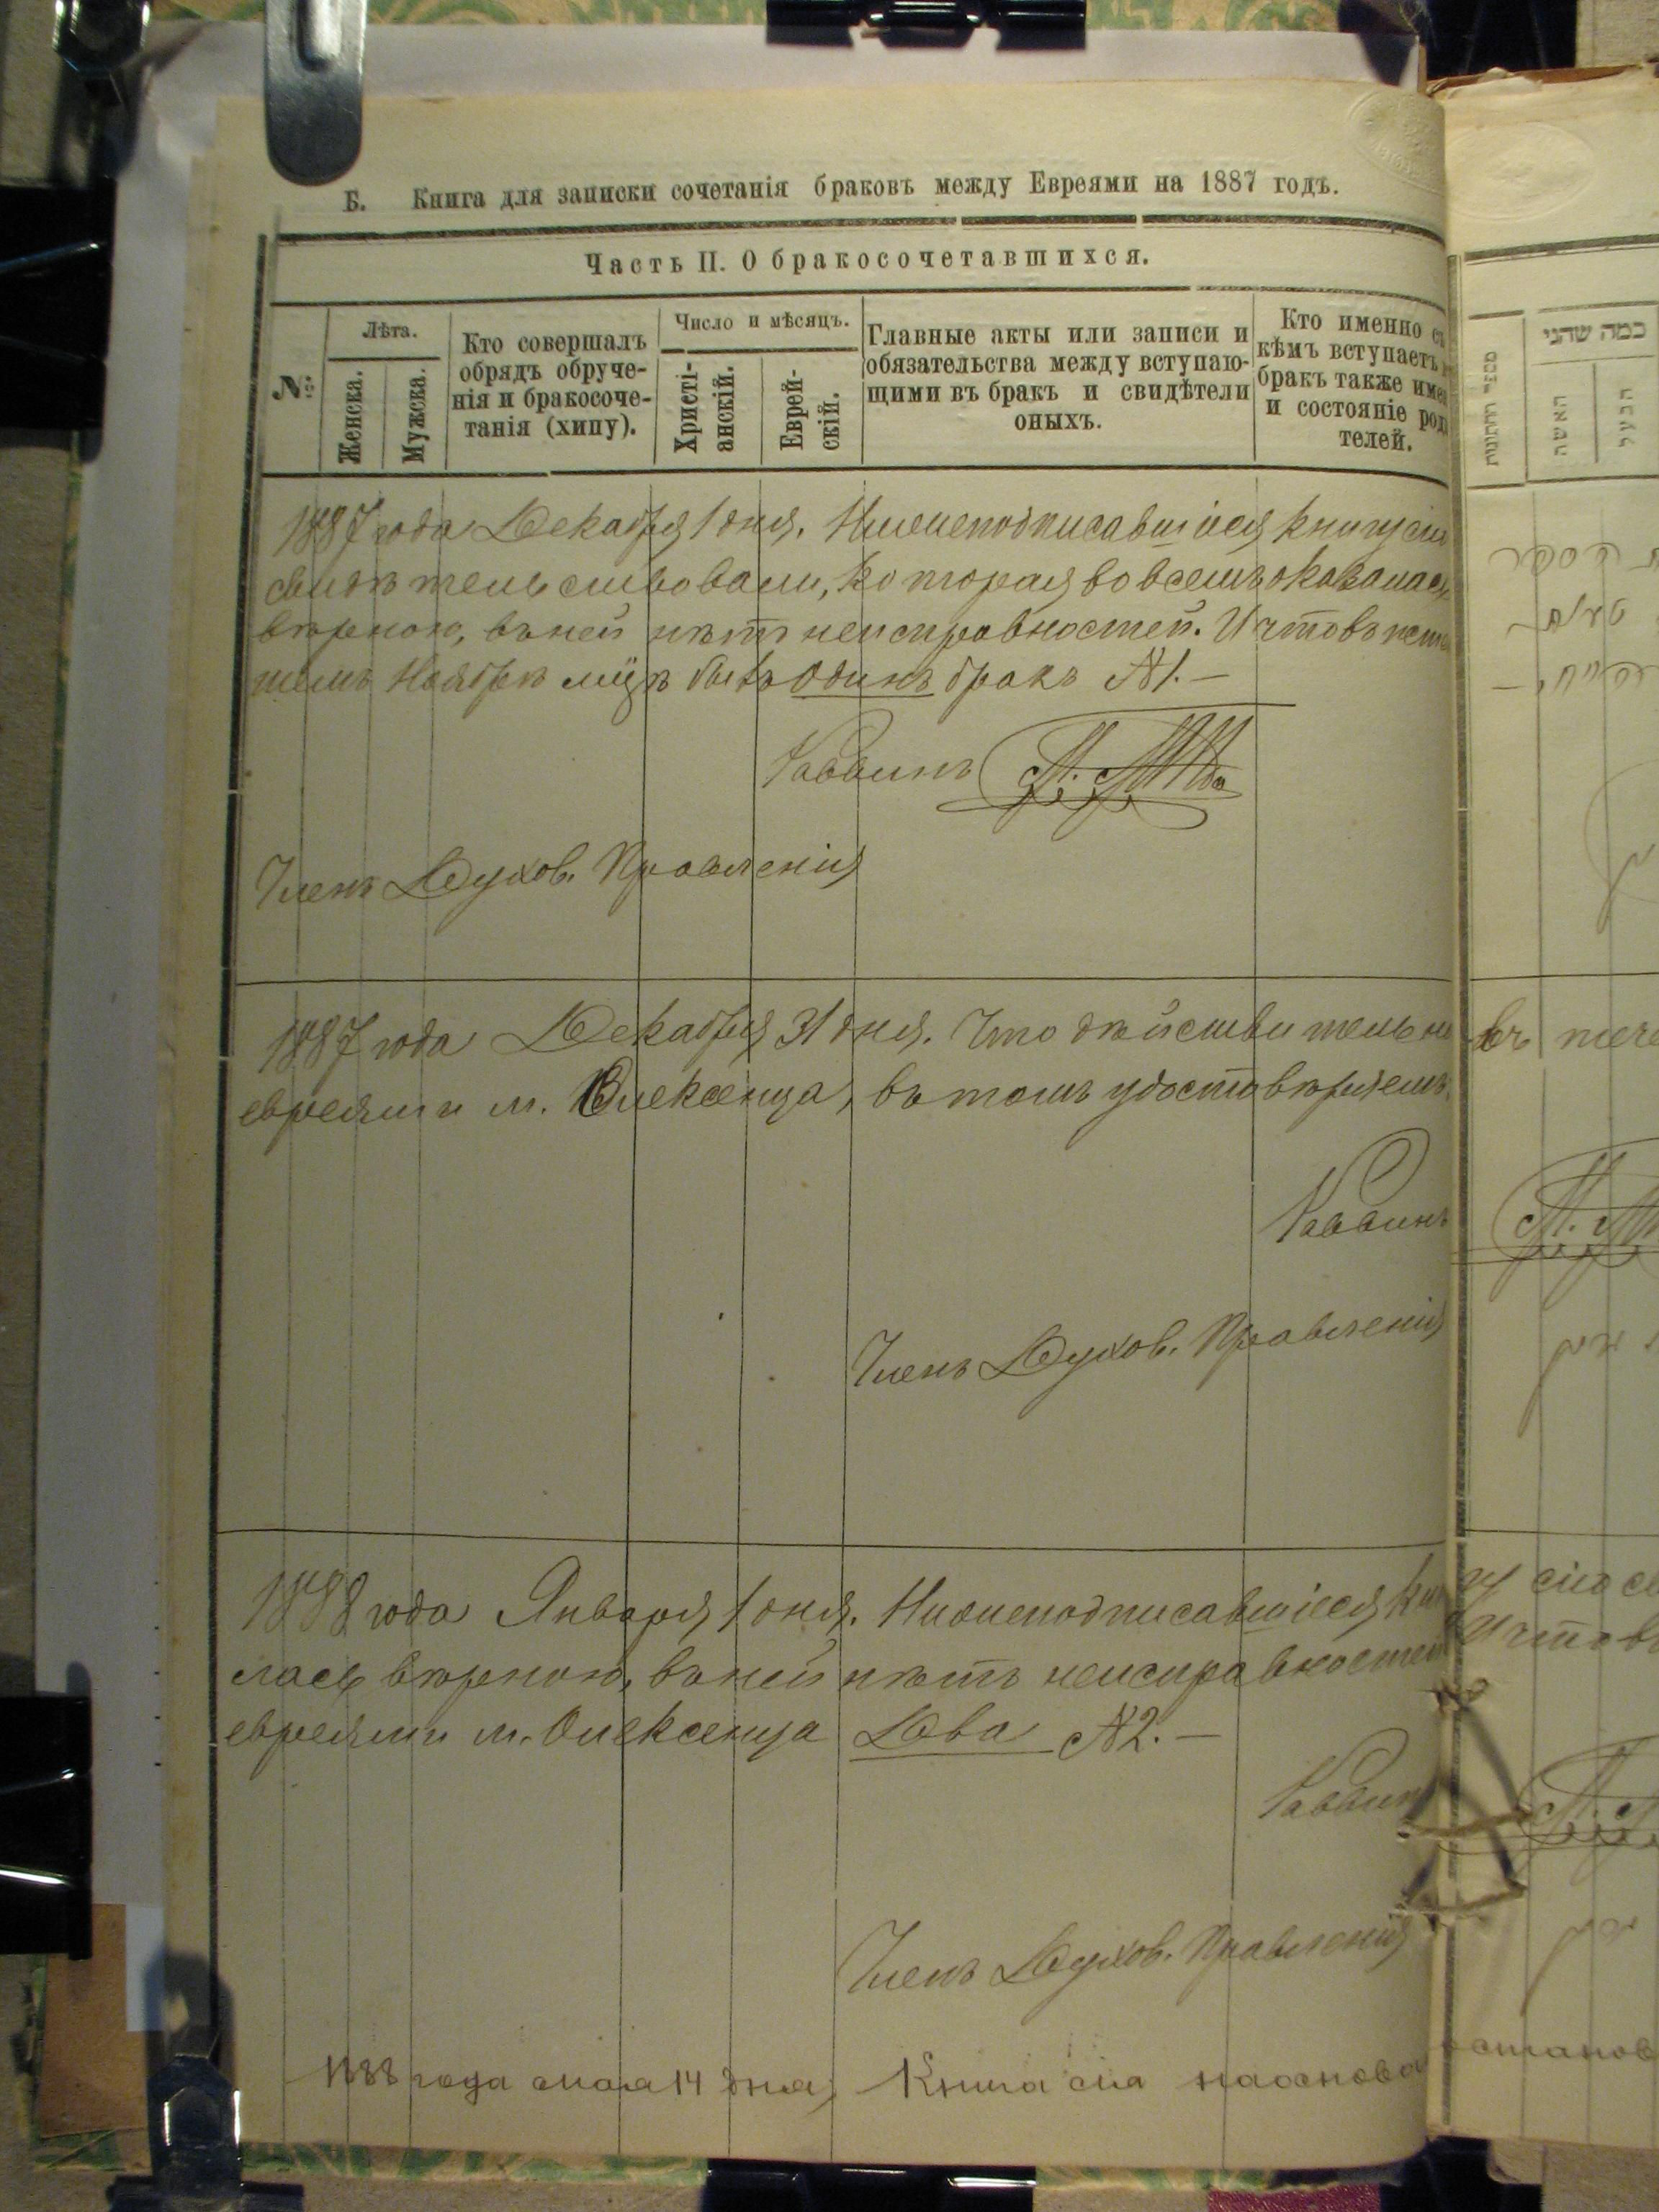 Б. Книга для записки сочетанія браковъ между Евреями на 1887 годъ.
Часть II. О бракосочетавшихся.
№
Лѣта.
Женска.
Мужска.
Кто совершалъ
обрядъ обруче-
нія и бракосоче-
танія (хипу).
Число и мѣсяцъ.
Христі-
анскій.
Еврей-
скій.
Главные акты или записи и
обязательства между вступаю-
щими въ бракъ и свидѣтели
оныхъ.
Кто именно съ
кѣмъ вступаетъ
бракъ также имена
и состояніе роди
телей.
כמה שהני
האשה
הבעל
1887 года Декабря 1 дня. Нижеподписавшіеся книгу сію
свидѣтельствовали, которая во всемъ оказалась
вѣрною, въ ней нѣтъ неисправностей. И что въ истек
шемъ Ноябрѣ мцѣ былъ одинъ бракъ №1.—
Раввинъ
Членъ Духов. Правленія
1887 года Декабря 31 дня. Что дѣйствительно въ тече
евреями м. Олексенца, въ томъ удостовѣряемъ.
Раввинъ
Членъ Духов. Правленія
1888 года Января 1 дня. Нижеподписавшіеся книгу сію св
лась вѣрною, въ ней нѣтъ неисправностей И что въ
евреями м. Олексенца Два №2.—
Раввинъ
Членъ Духов. Правленія
1888 года мая 14 дня, Книга сія на основа останов